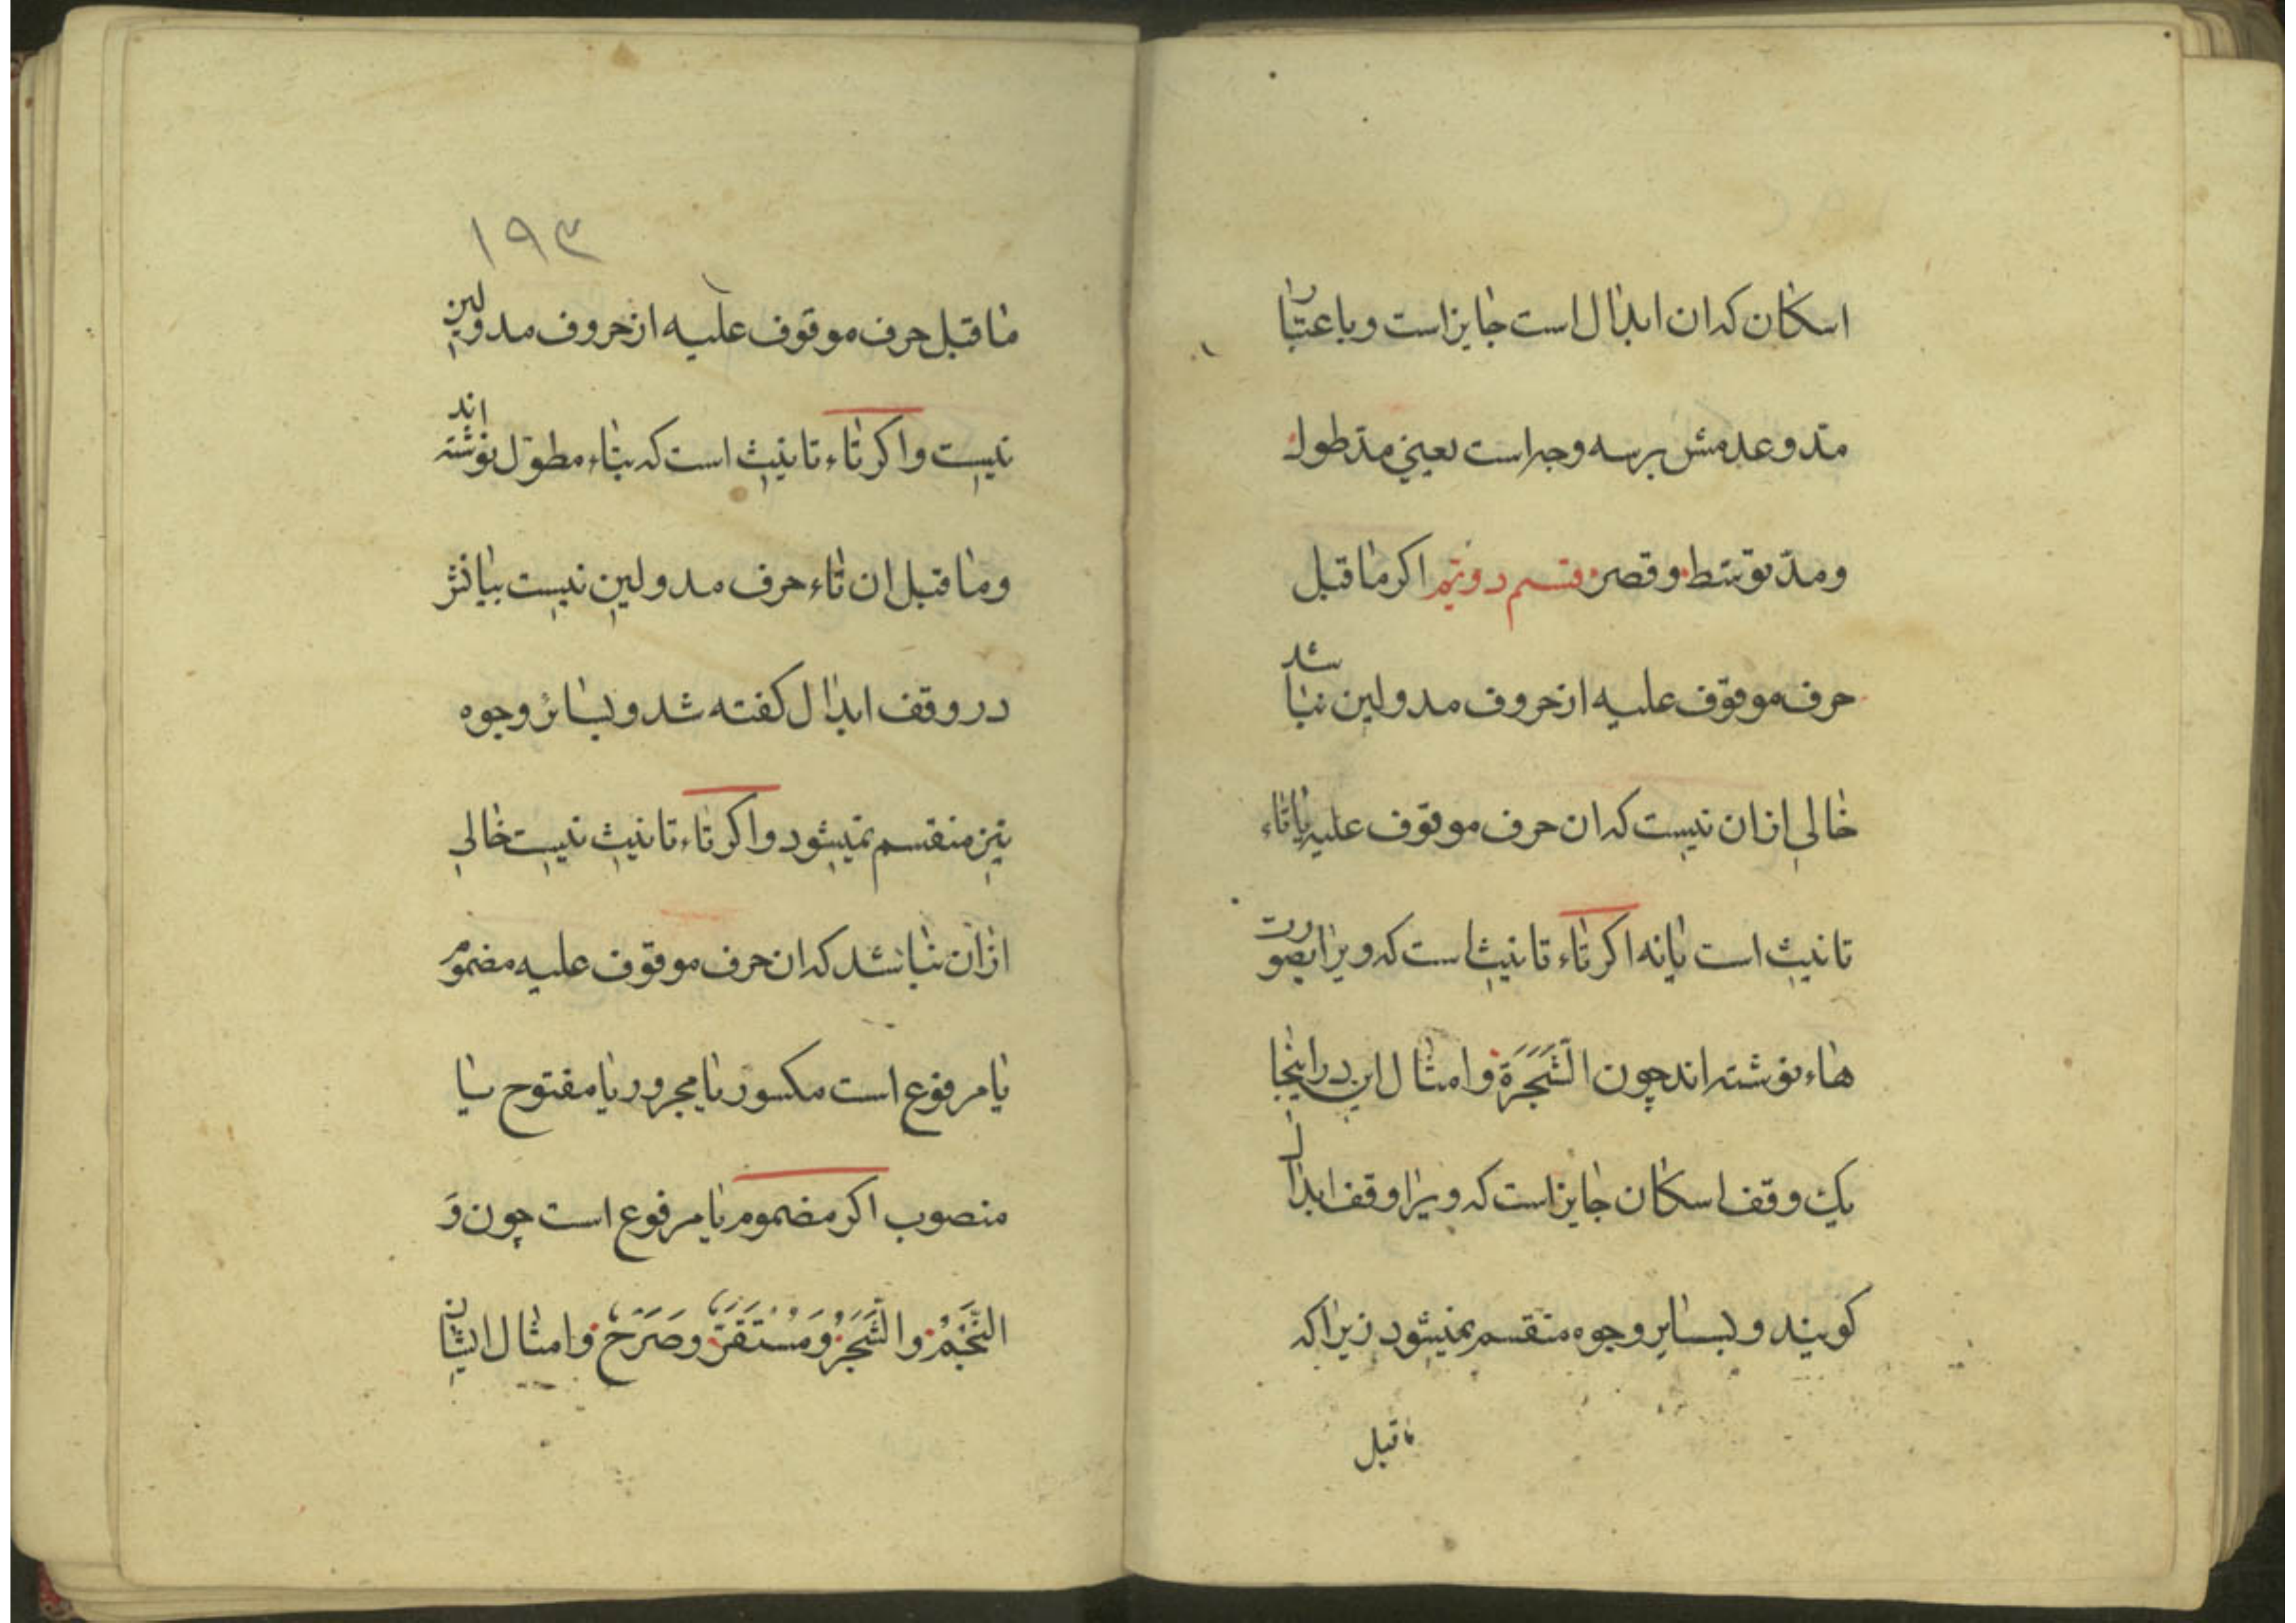 اسکان که ان ابدال است جایز است و باعتبار
مدّ و عدمش بر سه وجه است یعنی مدّ طول
و مدّ توسّط و قصر قسم دویّم اکر ماقبل
حرف موقوف علیه از حروف مد و لین نباشد
خالی از ان نیست که ان حرف موقوف علیه یا تاء
تانیث است یا نه اکر تاء تانیث است که ویرا بصورت
هاء نوشته اند چون الشَّجَرَة و امثال این در اینجا
یک وقف اسکان جایز است که ویرا وقف ابدال
کویند و بسایر وجوه منقسم نمیشود زیرا که
ماقبل
۱۹۳
ماقبل حرف موقوف علیه از حروف مد ولین
نیست و اکر تاء تانیث است که بتاء مطوّل نوشته اند
و ماقبل ان تاء حرف مد و لین نیست بیانش
در وقف ابدال کفته شد و بسائر وجوه
نیز منقسم نمیشود و اکر تاء تانیث نیست خالی
ازان نباشد که ان حرف موقوف علیه مضموم
یا مرفوع است مکسور یا مجرور یا مفتوح یا
منصوب اکر مضموم یا مرفوع است چون وَ
النَّجْمُ والشَّجَرُ ومُسْتَقَرٌّ وصَرْحٌ و امثال ایشان